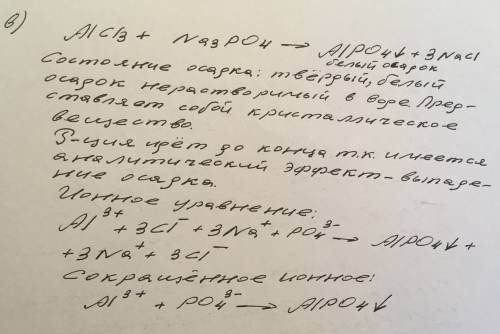 в)
AlCl3 + Na3PO4 → AlPO4↓ + 3NaCl
белый осадок
Состояние осадка: твёрдый, белый
осадок нерастворимый в воде. Пред-
ставляет собой кристаллическое
вещество.
Р-ция идёт до конца т.к. имеется
аналитический эффект - выпаде-
ние осадка.
Ионное уравнение:
Al³⁺ + 3Cl⁻ + 3Na⁺ + PO4³⁻ → AlPO4↓ +
+ 3Na⁺ + 3Cl⁻
Сокращённое ионное:
Al³⁺ + PO4³⁻ → AlPO4↓